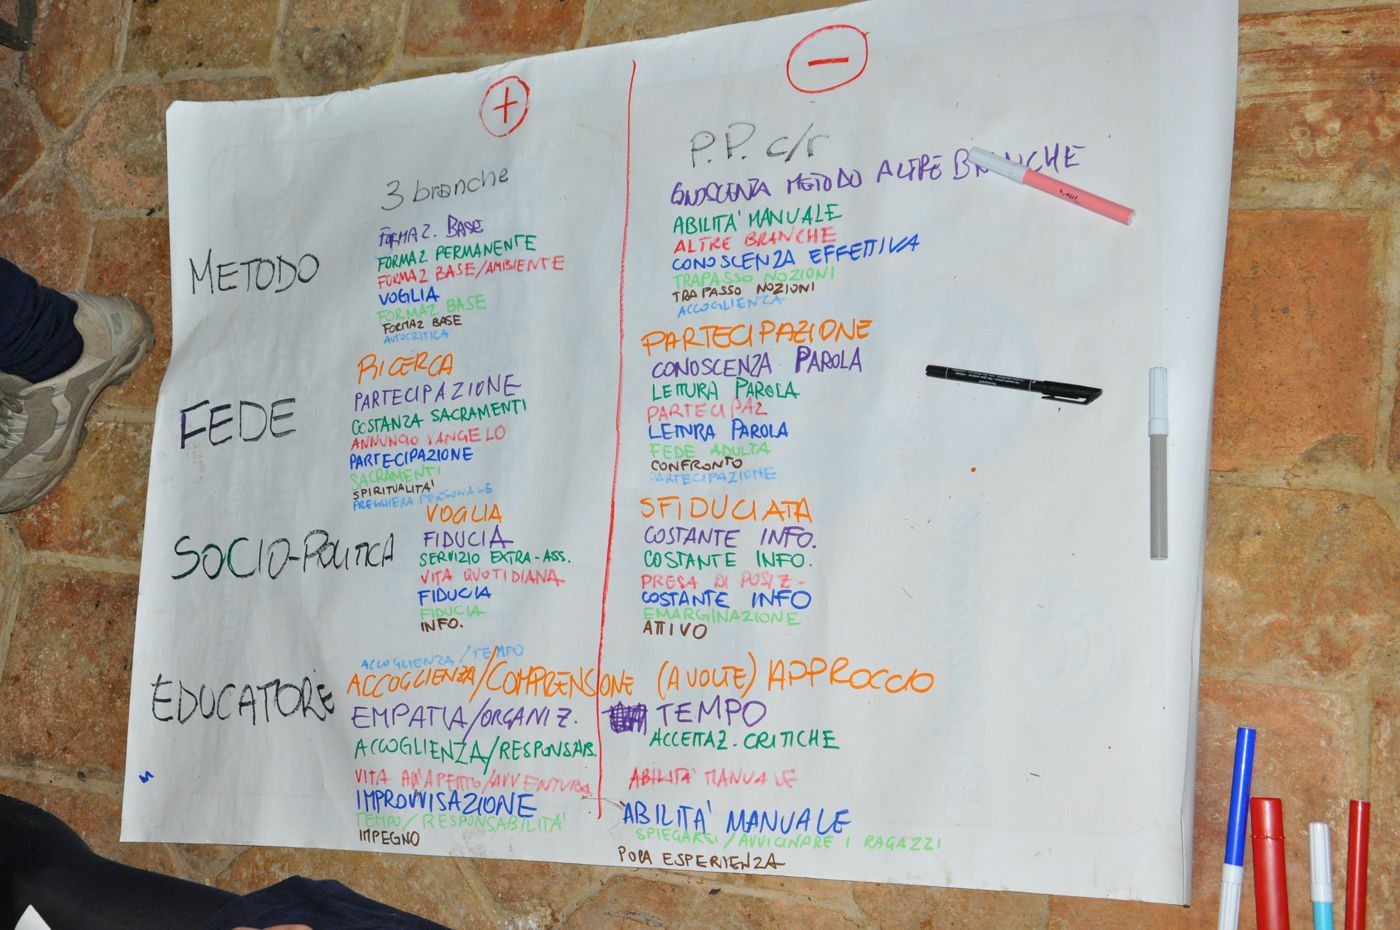 +
−
3 branche
P.P. c/r
METODO
FORMAZ. BASE
FORMAZ PERMANENTE
FORMAZ BASE/AMBIENTE
VOGLIA
FORMAZ BASE
FORMAZ BASE
AUTOCRITICA
CONOSCENZA METODO ALTRE BRANCHE
ABILITA' MANUALE
ALTRE BRANCHE
CONOSCENZA EFFETTIVA
TRAPASSO NOZIONI
TRAPASSO NOZIONI
ACCOGLIENZA
FEDE
RICERCA
PARTECIPAZIONE
COSTANZA SACRAMENTI
ANNUNCIO VANGELO
PARTECIPAZIONE
SACRAMENTI
SPIRITUALITA'
PREGHIERA PERSONALE
PARTECIPAZIONE
CONOSCENZA PAROLA
LETTURA PAROLA
PARTECIPAZ
LETTURA PAROLA
FEDE ADULTA
CONFRONTO
PARTECIPAZIONE
SOCIO-POLITICA
VOGLIA
FIDUCIA
SERVIZIO EXTRA-ASS.
VITA QUOTIDIANA
FIDUCIA
FIDUCIA
INFO.
SFIDUCIATA
COSTANTE INFO.
COSTANTE INFO.
PRESA DI POSIZ-
COSTANTE INFO
EMARGINAZIONE
ATTIVO
EDUCATORE
ACCOGLIENZA/TEMPO
ACCOGLIENZA/COMPRENSIONE
EMPATIA/ORGANIZ.
ACCOGLIENZA/RESPONSAB.
VITA ALL'APERTO/AVVENTURA
IMPROVVISAZIONE
TEMPO/RESPONSABILITA'
IMPEGNO
(A VOLTE) APPROCCIO
TEMPO
ACCETTAZ. CRITICHE
ABILITA' MANUALE
ABILITA' MANUALE
SPIEGARSI/AVVICINARE I RAGAZZI
POCA ESPERIENZA